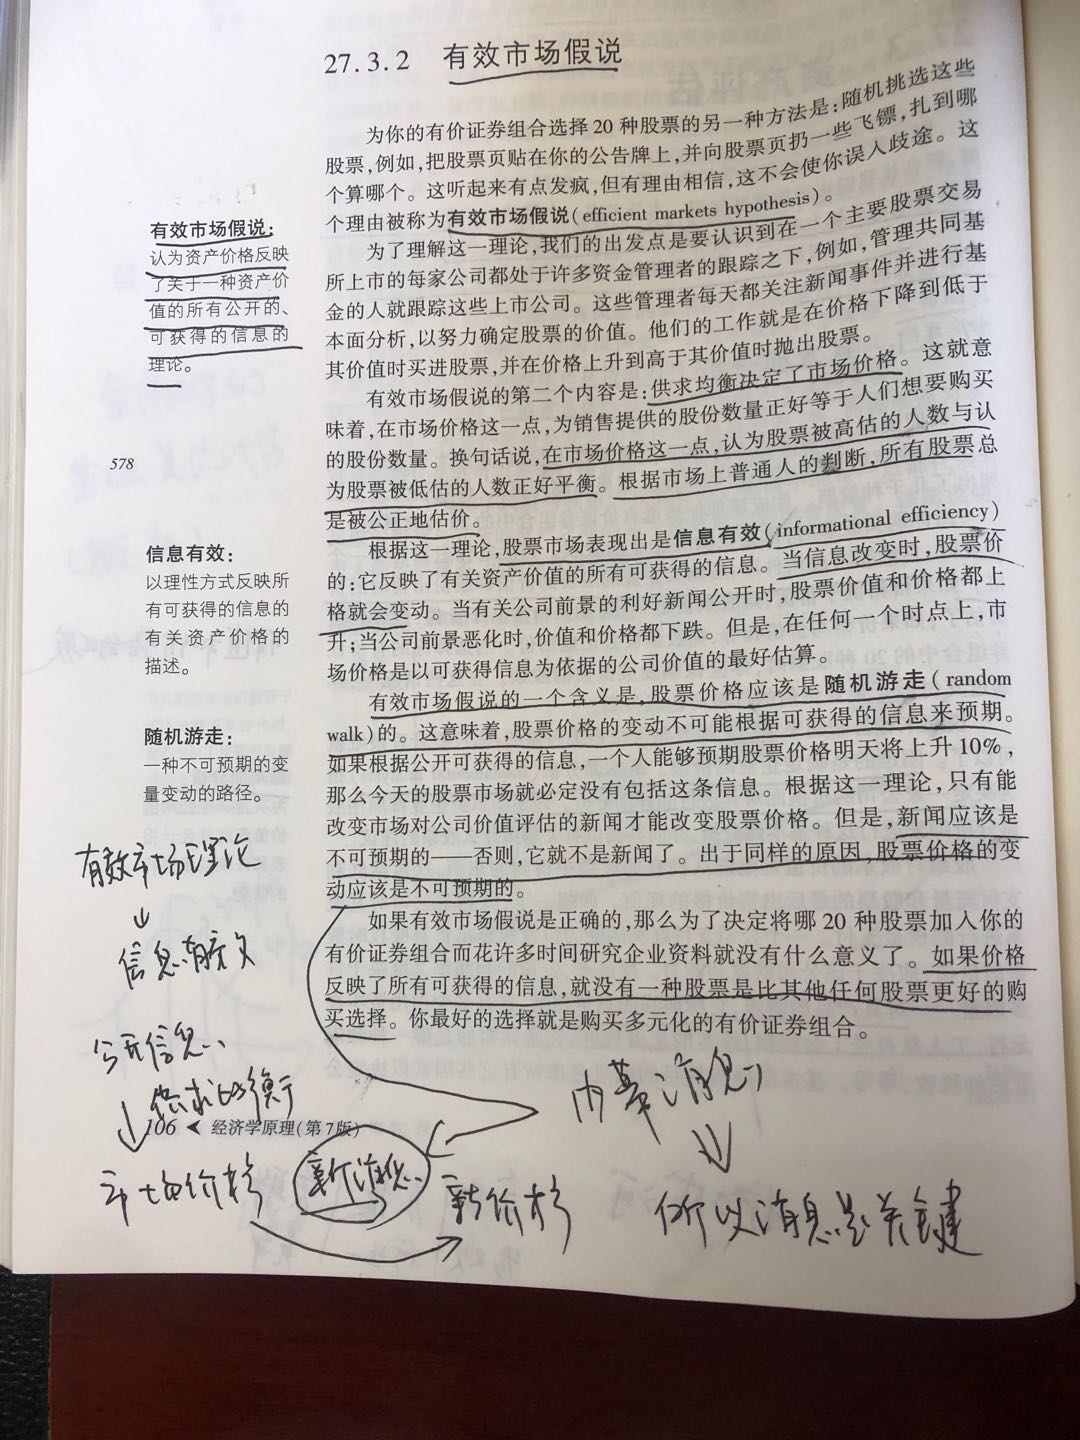 27.3.2 有效市场假说
为你的有价证券组合选择20种股票的另一种方法是：随机挑选这些
股票，例如，把股票页贴在你的公告牌上，并向股票页扔一些飞镖，扎到哪
个算哪个。这听起来有点发疯，但有理由相信，这不会使你误入歧途。这
个理由被称为有效市场假说(efficient markets hypothesis)。
为了理解这一理论，我们的出发点是要认识到在一个主要股票交易
所上市的每家公司都处于许多资金管理者的跟踪之下，例如，管理共同基
金的人就跟踪这些上市公司。这些管理者每天都关注新闻事件并进行基
本面分析，以努力确定股票的价值。他们的工作就是在价格下降到低于
其价值时买进股票，并在价格上升到高于其价值时抛出股票。
有效市场假说的第二个内容是：供求均衡决定了市场价格。这就意
味着，在市场价格这一点，为销售提供的股份数量正好等于人们想要购买
的股份数量。换句话说，在市场价格这一点，认为股票被高估的人数与认
为股票被低估的人数正好平衡。根据市场上普通人的判断，所有股票总
是被公正地估价。
根据这一理论，股票市场表现出是信息有效(informational efficiency)
的：它反映了有关资产价值的所有可获得的信息。当信息改变时，股票价
格就会变动。当有关公司前景的利好新闻公开时，股票价值和价格都上
升；当公司前景恶化时，价值和价格都下跌。但是，在任何一个时点上，市
场价格是以可获得信息为依据的公司价值的最好估算。
有效市场假说的一个含义是，股票价格应该是随机游走(random
walk)的。这意味着，股票价格的变动不可能根据可获得的信息来预期。
如果根据公开可获得的信息，一个人能够预期股票价格明天将上升10%，
那么今天的股票市场就必定没有包括这条信息。根据这一理论，只有能
改变市场对公司价值评估的新闻才能改变股票价格。但是，新闻应该是
不可预期的——否则，它就不是新闻了。出于同样的原因，股票价格的变
动应该是不可预期的。
如果有效市场假说是正确的，那么为了决定将哪20种股票加入你的
有价证券组合而花许多时间研究企业资料就没有什么意义了。如果价格
反映了所有可获得的信息，就没有一种股票是比其他任何股票更好的购
买选择。你最好的选择就是购买多元化的有价证券组合。
有效市场假说：
认为资产价格反映
了关于一种资产价
值的所有公开的、
可获得的信息的
理论。
578
信息有效：
以理性方式反映所
有可获得的信息的
有关资产价格的
描述。
随机游走：
一种不可预期的变
量变动的路径。
有效市场理论
↓
信息有效
公开信息
↓ 供求均衡
106 ◀ 经济学原理(第7版)
市场价格
新消息
新价格
内幕消息
↓
所以消息是关键